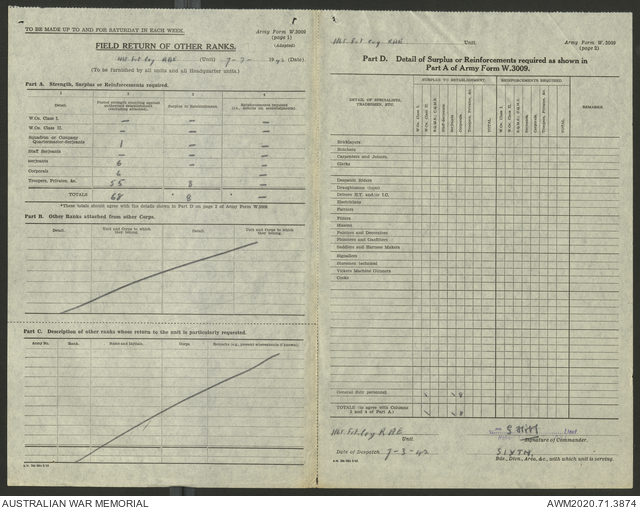 TO BE MADE UP TO AND FOR SATURDAY IN EACH WEEK.
Army Form W.3009
(page 1)
(Adapted)
FIELD RETURN OF OTHER RANKS.
(Unit) 7-3-1942 (Date).
(To be furnished by all units and all Headquarter units.)
Part A. Strength, Surplus or Reinforcements required.
1 2 3 4
Detail.
Surplus to Establishment.
Reinforcements required
W.Os. Class I. — —
W.Os. Class II. — —
Squadron or Company
Quartermaster-Sergeants 1 —
Staff Sergeants — —
Sergeants 6 —
Corporals 6 —
Troopers, Privates, &c. 55 8 —
TOTALS 68 * 8 * —
*These totals should agree with the details shown in Part D on page 2 of Army Form W.3009.
Part B. Other Ranks attached from other Corps.
Detail. Unit and Corps to which they belong. Detail. Unit and Corps to which they belong.
Part C. Description of other ranks whose return to the unit is particularly requested.
Army No. Rank. Name and Initials. Corps. Remarks (e.g., present whereabouts if known).
Unit
Army Form W.3009
(page 2)
Part D. Detail of Surplus or Reinforcements required as shown in
Part A of Army Form W.3009.
SURPLUS TO ESTABLISHMENT. REINFORCEMENTS REQUIRED.
DETAIL OF SPECIALISTS, TRADESMEN, ETC.
W.Os. Class I.
W.Os. Class II.
Staff-Sergeants
Sergeants
Corporals
Troopers, Privates, &c.
TOTAL
W.Os. Class I.
W.Os. Class II.
Sergeants
Corporals
Troopers, Privates, &c.
TOTAL
REMARKS
Bricklayers
Butchers
Carpenters and Joiners
Clerks
Despatch Riders
Draughtsmen (topo)
Drivers M.T. and/or I.C.
Electricians
Farriers
Fitters
Masons
Painters and Decorators
Plumbers and Gasfitters
Saddlers and Harness Makers
Signallers
Storemen technical
Vickers Machine Gunners
Cooks
General duty personnel 8
TOTALS (to agree with Columns
3 and 4 of Part A.) 8
Unit.
Signature of Commander.
Date of Despatch 7-3-42
SIXTH
Bde., Divn., Area, &c., with which unit is serving.
AUSTRALIAN WAR MEMORIAL
AWM2020.71.3874